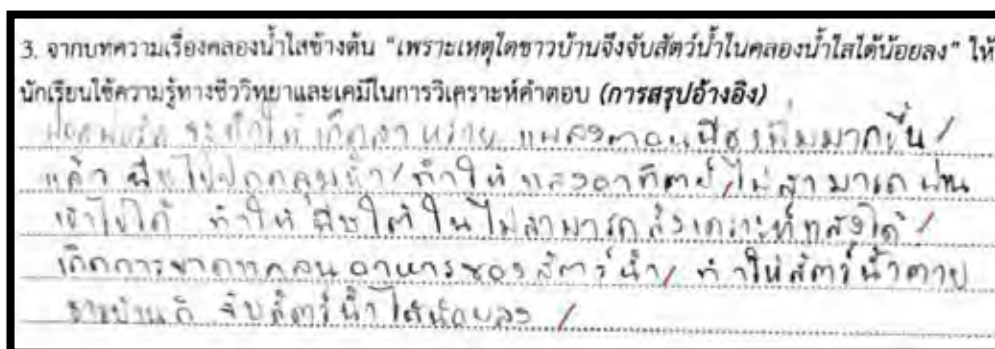 3. จากบทความเรื่องคลองน้ำใสข้างต้น "เพราะเหตุใดชาวบ้านจึงจับสัตว์น้ำในคลองน้ำใสได้น้อยลง" ให้
นักเรียนใช้ความรู้ทางชีววิทยาและเคมีในการวิเคราะห์คำตอบ (การสรุปอ้างอิง)
จะทำให้เกิดสาหร่าย แพลงตอนพืชเพิ่มมากขึ้น /
แล้ว พืชไปปกคลุมน้ำ / ทำให้ แสงอาทิตย์ / ไม่สามารถ ผ่าน
เข้าไปได้ ทำให้ พืชใต้ ไม่สามารถ สังเคราะห์แสงได้ /
เกิดการขาดแคลน อาหารของ สัตว์น้ำ / ทำให้สัตว์น้ำตาย
ชาวบ้านก็ จับสัตว์น้ำ ได้น้อยลง /